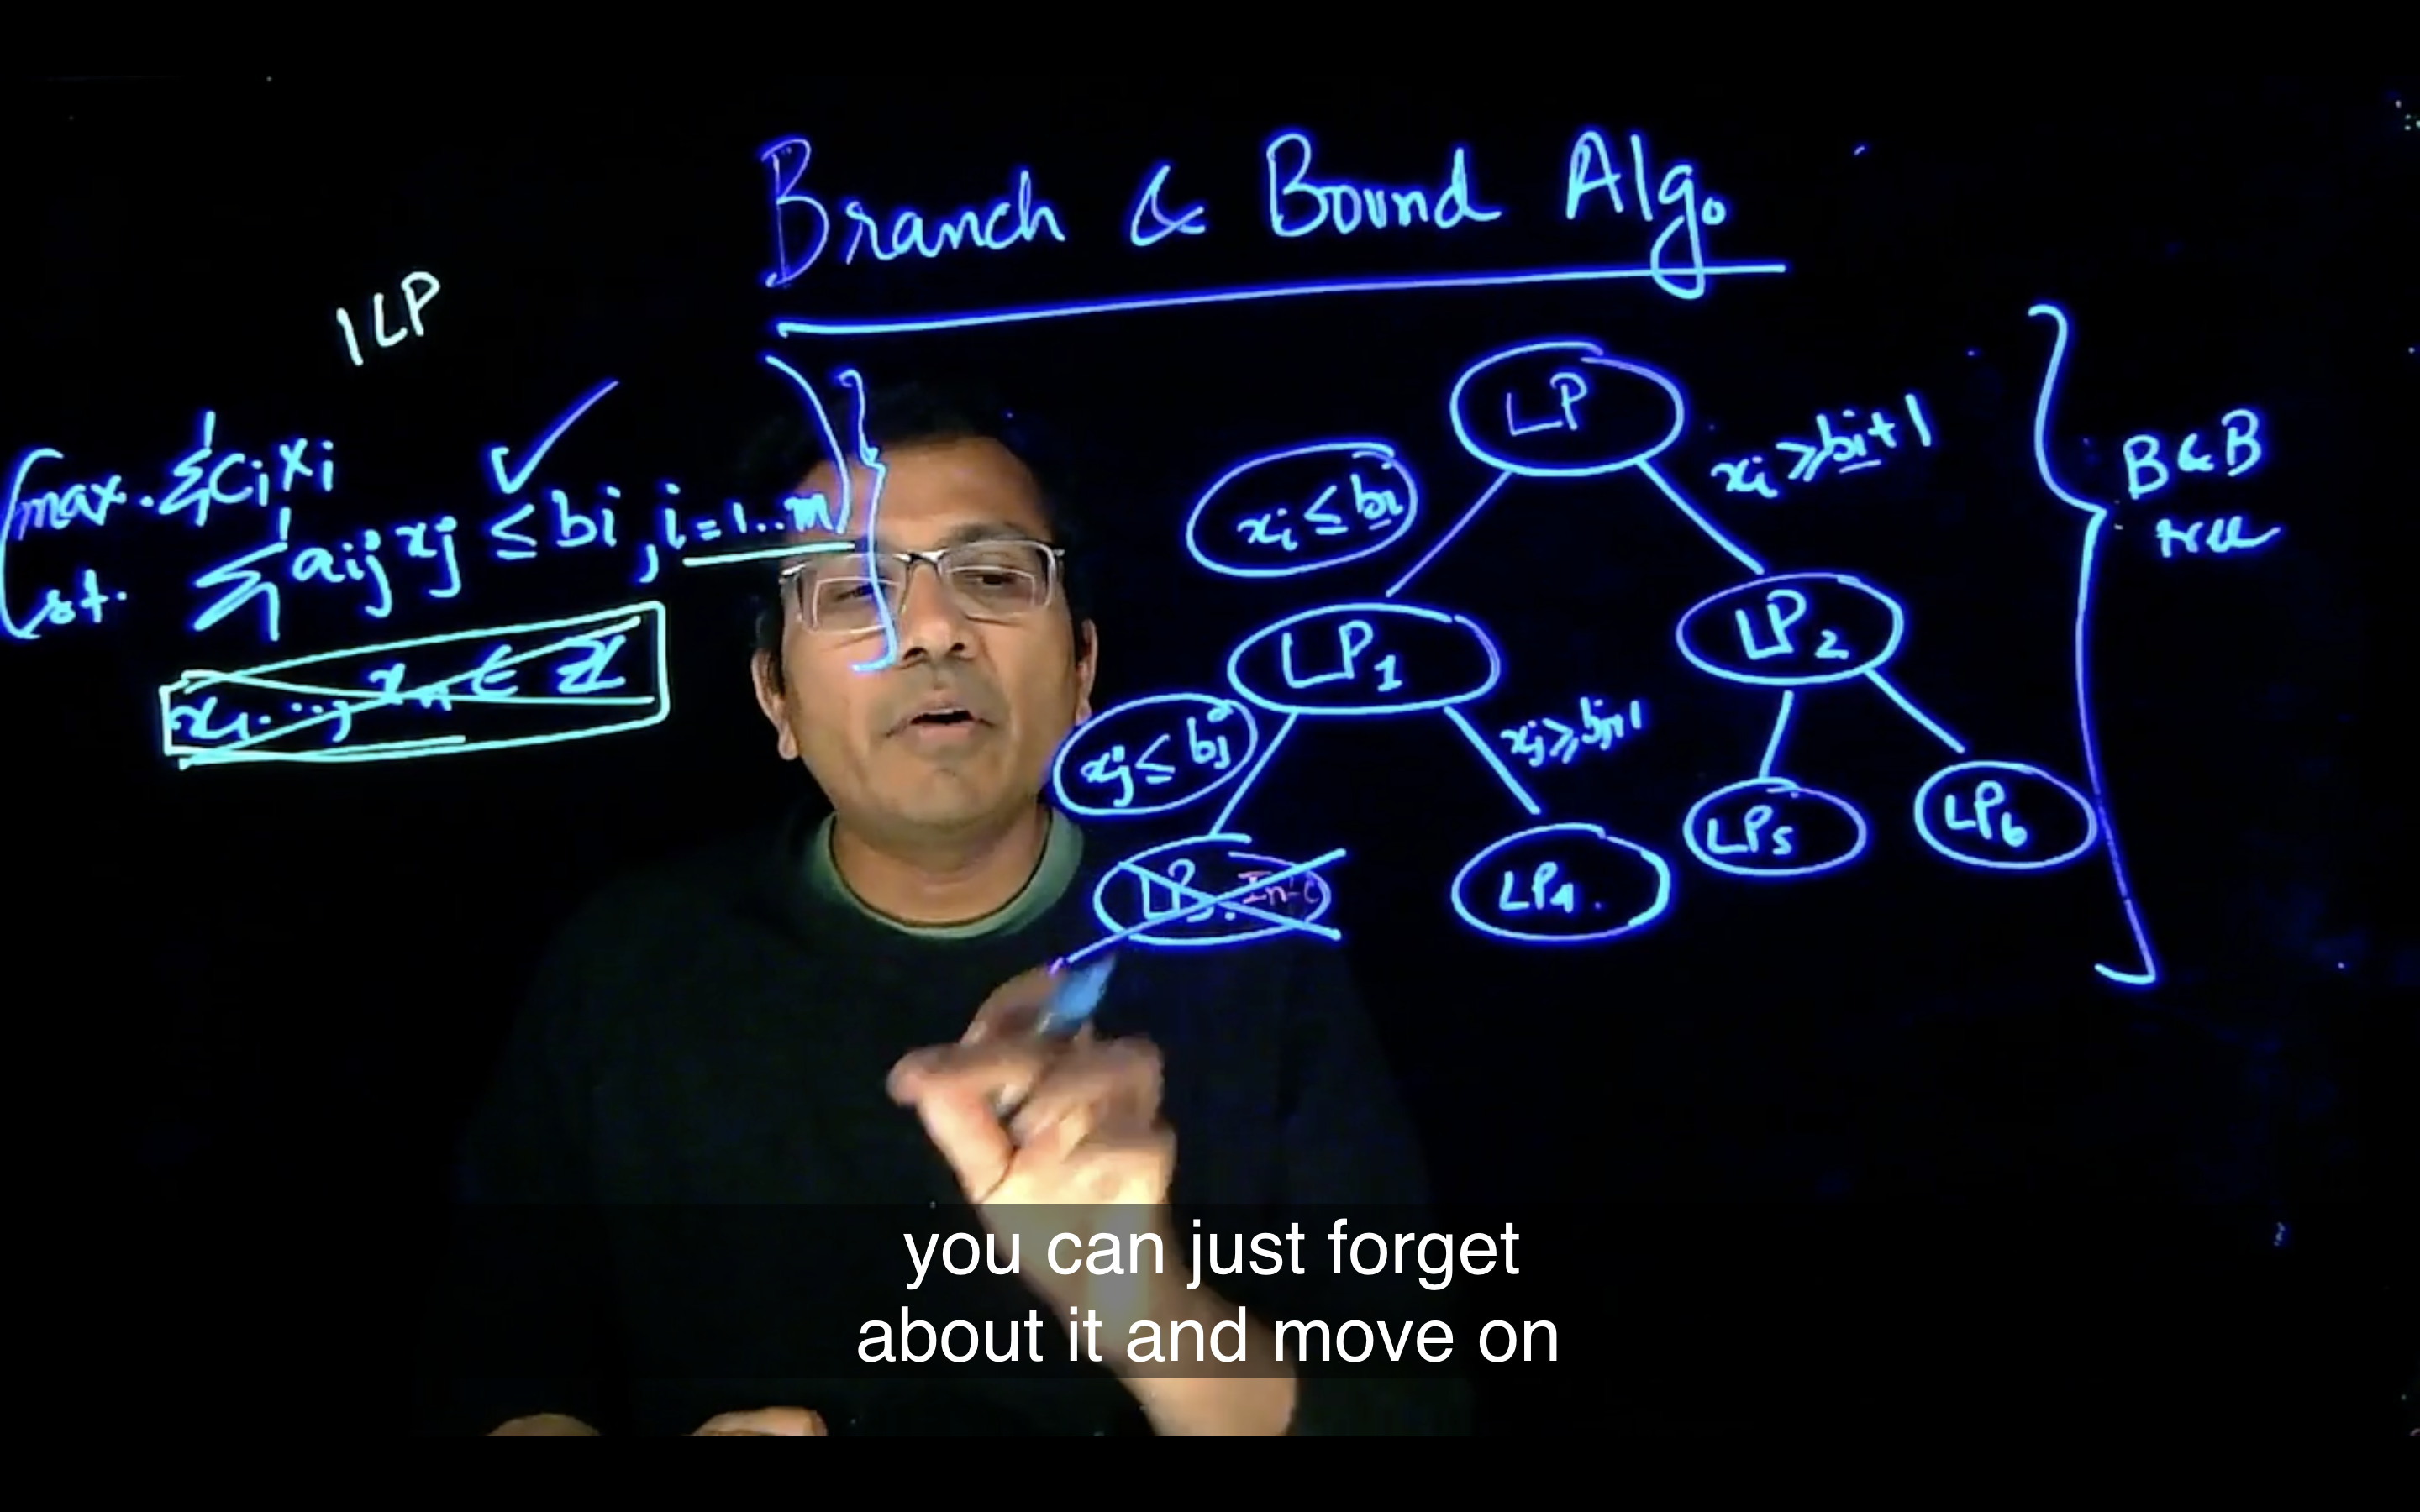 Branch & Bound Algo.
ILP
max. Σ cᵢ xᵢ
st. Σ aᵢⱼ xⱼ ≤ bi, i = 1..m
x₁..., xₙ ∈ ℤ
LP
xᵢ ≤ bᵢ
xᵢ ≥ bᵢ + 1
B & B
tree
LP₁
LP₂
xⱼ ≤ bⱼ
xⱼ ≥ bⱼ+1
LP₃. Inf
LP₄.
LP₅
LP₆
you can just forget
about it and move on